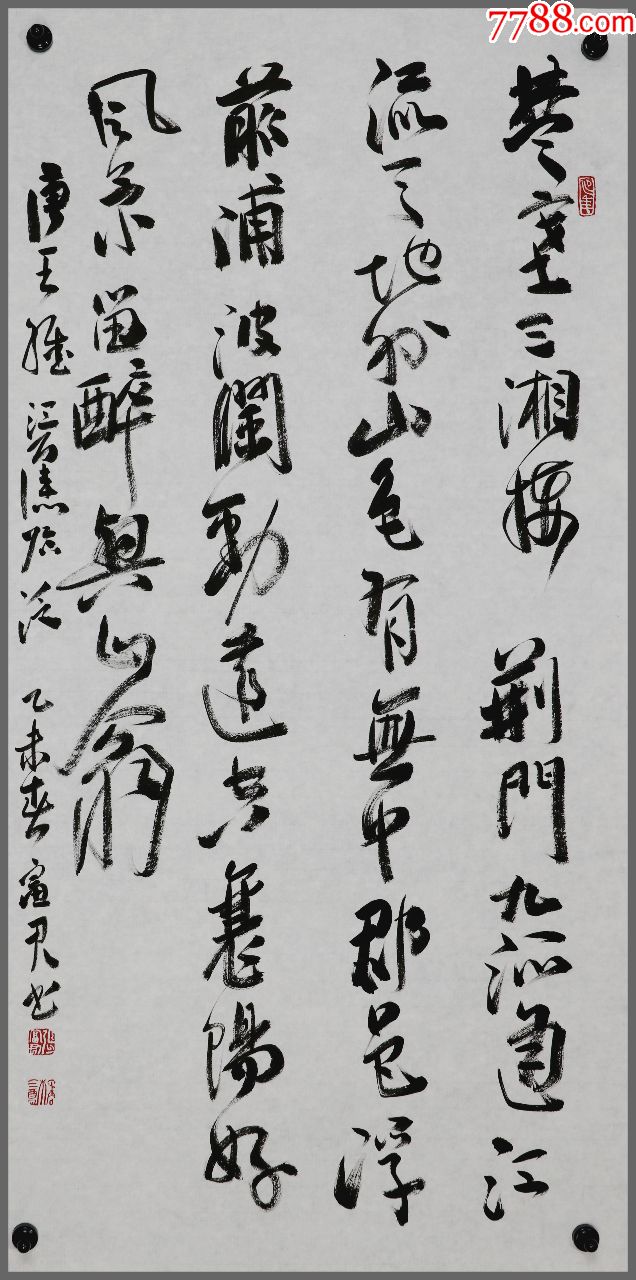 7788.com
楚塞三湘接荊門九派通江
流天地外山色有無中郡邑浮
前浦波瀾動遠空襄陽好
风景留醉與山翁
唐王維 泛 乙未春 书